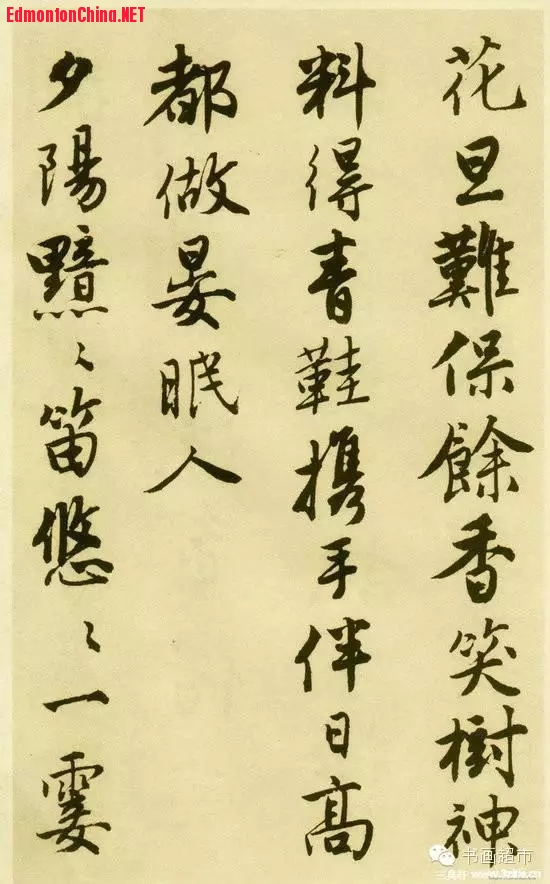 EdmontonChina.NET
花旦難保餘香笑樹神
料得青鞋携手伴日高
都做晏眠人
夕陽黯〻笛悠〻一霎
书画超市